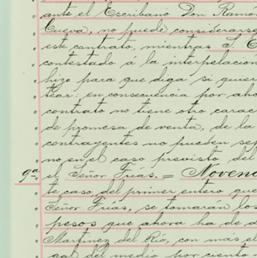 ante el Escribano Don Ramón
Cueva, no puede considerarse
este contrato, mientras
contestado á la interpelacion
hizo para que diga si quiere
en consecuencia por aho
contrato no tiene otro carac
de promesa de venta, de la
contrayentes no pueden sep
no en el caso previsto del
9ª el Señor Frias. = Noven
te caso del primer entero que
Señor Frias, se tomarán los
pesos que ahora ha de
Martinez del Rio, con más el
gal del medio por ciento